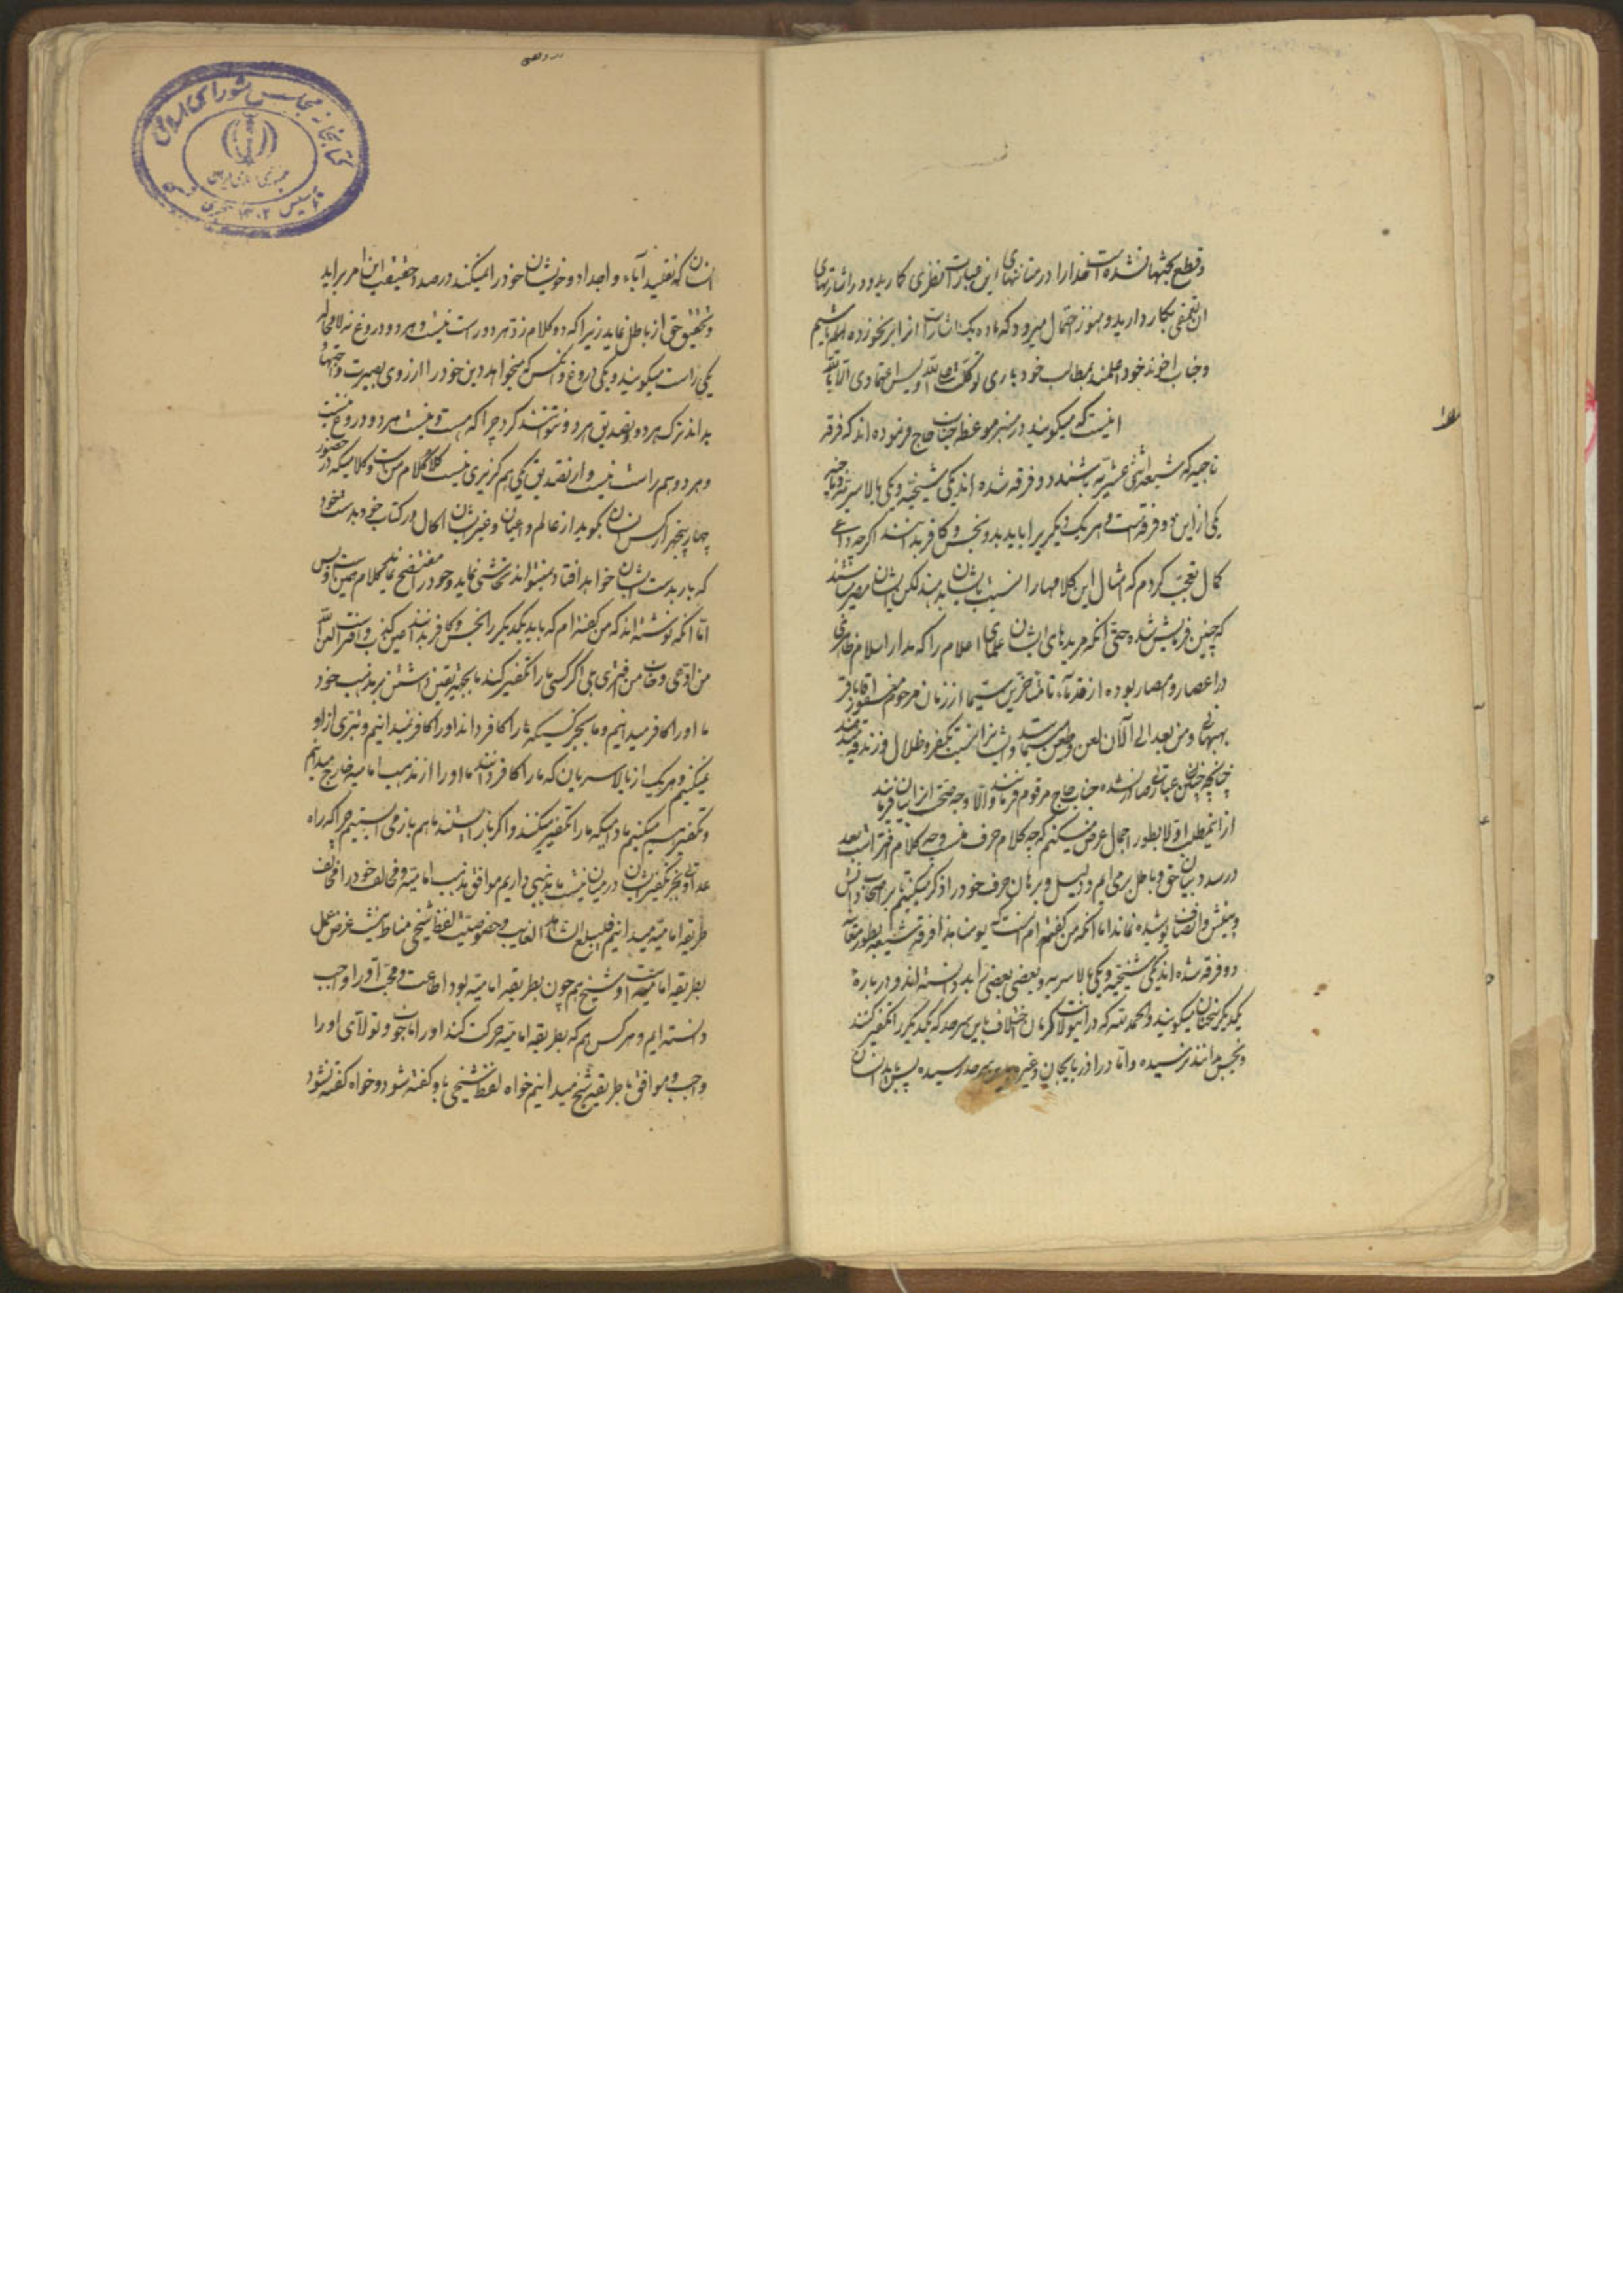 وقطع حجتها نشده است خدارا در متانتهای این عبارات نظری کار برید و در اشارتهای
ان تعمقی بکار دارید و هنوز احتمال میرود که ماده یک اشارات از ابر نخورده
وجناب اخوند خود اعلمند بمطالب خود باری توکلت علی الله و لیس اعتمادی الا بالله
اینست که میگویند در منبر موعظه جناب حاج فرموده اند که فرقه
ناجیه که شیعه اثنی عشریه باشند دو فرقه شده اند یکی شیخیه و یکی بالاسریه و ناجیه
یکی از این دو فرقه است و هر یک دیگری را باید بد و نجس و کافر بدانند اگرچه داعی
کمال تعجب کردم که امثال این کلامها را نسبت بایشان بدهند لکن ایشان مصر هستند
که چنین فرمایش شده حتی آنکه مریدهای ایشان علمای اعلام را که مدار اسلام ظاهری
در اعصار و امصار بوده از قدماء تا متاخرین سیما از زمان مرحوم اقا باقر
بهبهانی و من بعد الی الآن لعن و طعن و نسبت بکفر و ضلال و زندقه میدهند
چنانچه چنین عباراتی صادر نشده جناب حاج مرقوم فرمایند والا وجه صحت انرا بیان فرمایند
از اینمطلب اولا بطور اجمال عرض میکنم که چه کلام حرف منست و چه کلام افتراست بعد
در صدد بیان حق و باطل بر می ایم و دلیل و برهان حرف خود را ذکر میکنیم تا بر صاحبان دانش
و بینش و انصاف پوشیده نماند اما آنکه من گفته ام اینست که یومنا هذا فرقه شیعه
دو فرقه شده اند یکی شیخیه و یکی بالاسریه و بعضی بعضی را بد دانسته اند و در باره
یکدیگر سخنان میگویند والحمد لله که در این ولایت کرمان اختلاف باین سرحد که یکدیگر را تکفیر کنند
و نجس دانند نرسیده و اما در اذربایجان و غیره سرحد رسیده پس باید انسان
انسان که تقلید آباء و اجداد و خویشان خود را نمیکند در صدد حقیقت این امر براید
و تحقیق حق از باطل نماید زیرا که دو کلام ضد هر دو راست نیست و هر دو دروغ نه لامحاله
یکی راست میگویند و یکی دروغ و انکس که میخواهد دین خود را از روی بصیرت و اجتهاد
بداند ترک هر دو و تصدیق هر دو نتوانند کرد چرا که هست و نیست هر دو دروغ نیست
و هر دو هم راست نیست و از تصدیق یکی هم گزیری نیست کلام من است و کلامیکه در حضور
چهار پنجهزار کس انسان بگوید از عالم و اعیان و غیر ایشان کمال در کتاب خود بدست خود
که بار بدست ایشان خواهد افتاد نمیتواند تحاشی نماید و خود را مفتضح نماید کلام من این است و بس
اما آنکه نوشته اند که من گفته ام که باید یکدیگر را نجس و کافر بدانند این کذب و افترا است لعن الله
من ادعی و خاب من افتری بلی اگر کسی ما را تکفیر کند ما بجهة یقین داشتن بر مذهب خود
ما او را کافر میدانیم و ما بجز کسیکه ما را کافر داند او را کافر نمیدانیم و تبری از او
نمیکنیم و هر یک از بالاسریان که ما را کافر دانند ما او را از مذهب امامیه خارج میدانیم
و تکفیر میکنیم مادامیکه ما را تکفیر میکنند و اگر باز ایستند ما هم باز می ایستیم چرا که راه
عداوتی بجز تکفیر ایشان در میان نیست ما مذهبی داریم موافق مذهب امامیه و مخالف خود را مخالف
طریقه امامیه میدانیم فلیبلغ الشاهد الغایب و خصوصیت لفظ شیخی مناط نیست غرض عمل
بطریقه امامیه است و شیخ هم چون بطریقه امامیه بود اطاعت و محبت او را واجب
دانسته ایم و هر کس هم که بطریقه امامیه حرکت کند او را ناجی و تولای او را
واجب و موافق با طریقه شیخ میدانیم خواه لفظ شیخی باو گفته شود و خواه گفته نشود
کتابخانه مجلس شورای اسلامی
جمهوری اسلامی ایران
تاسیس ۱۳۰۲ هجری